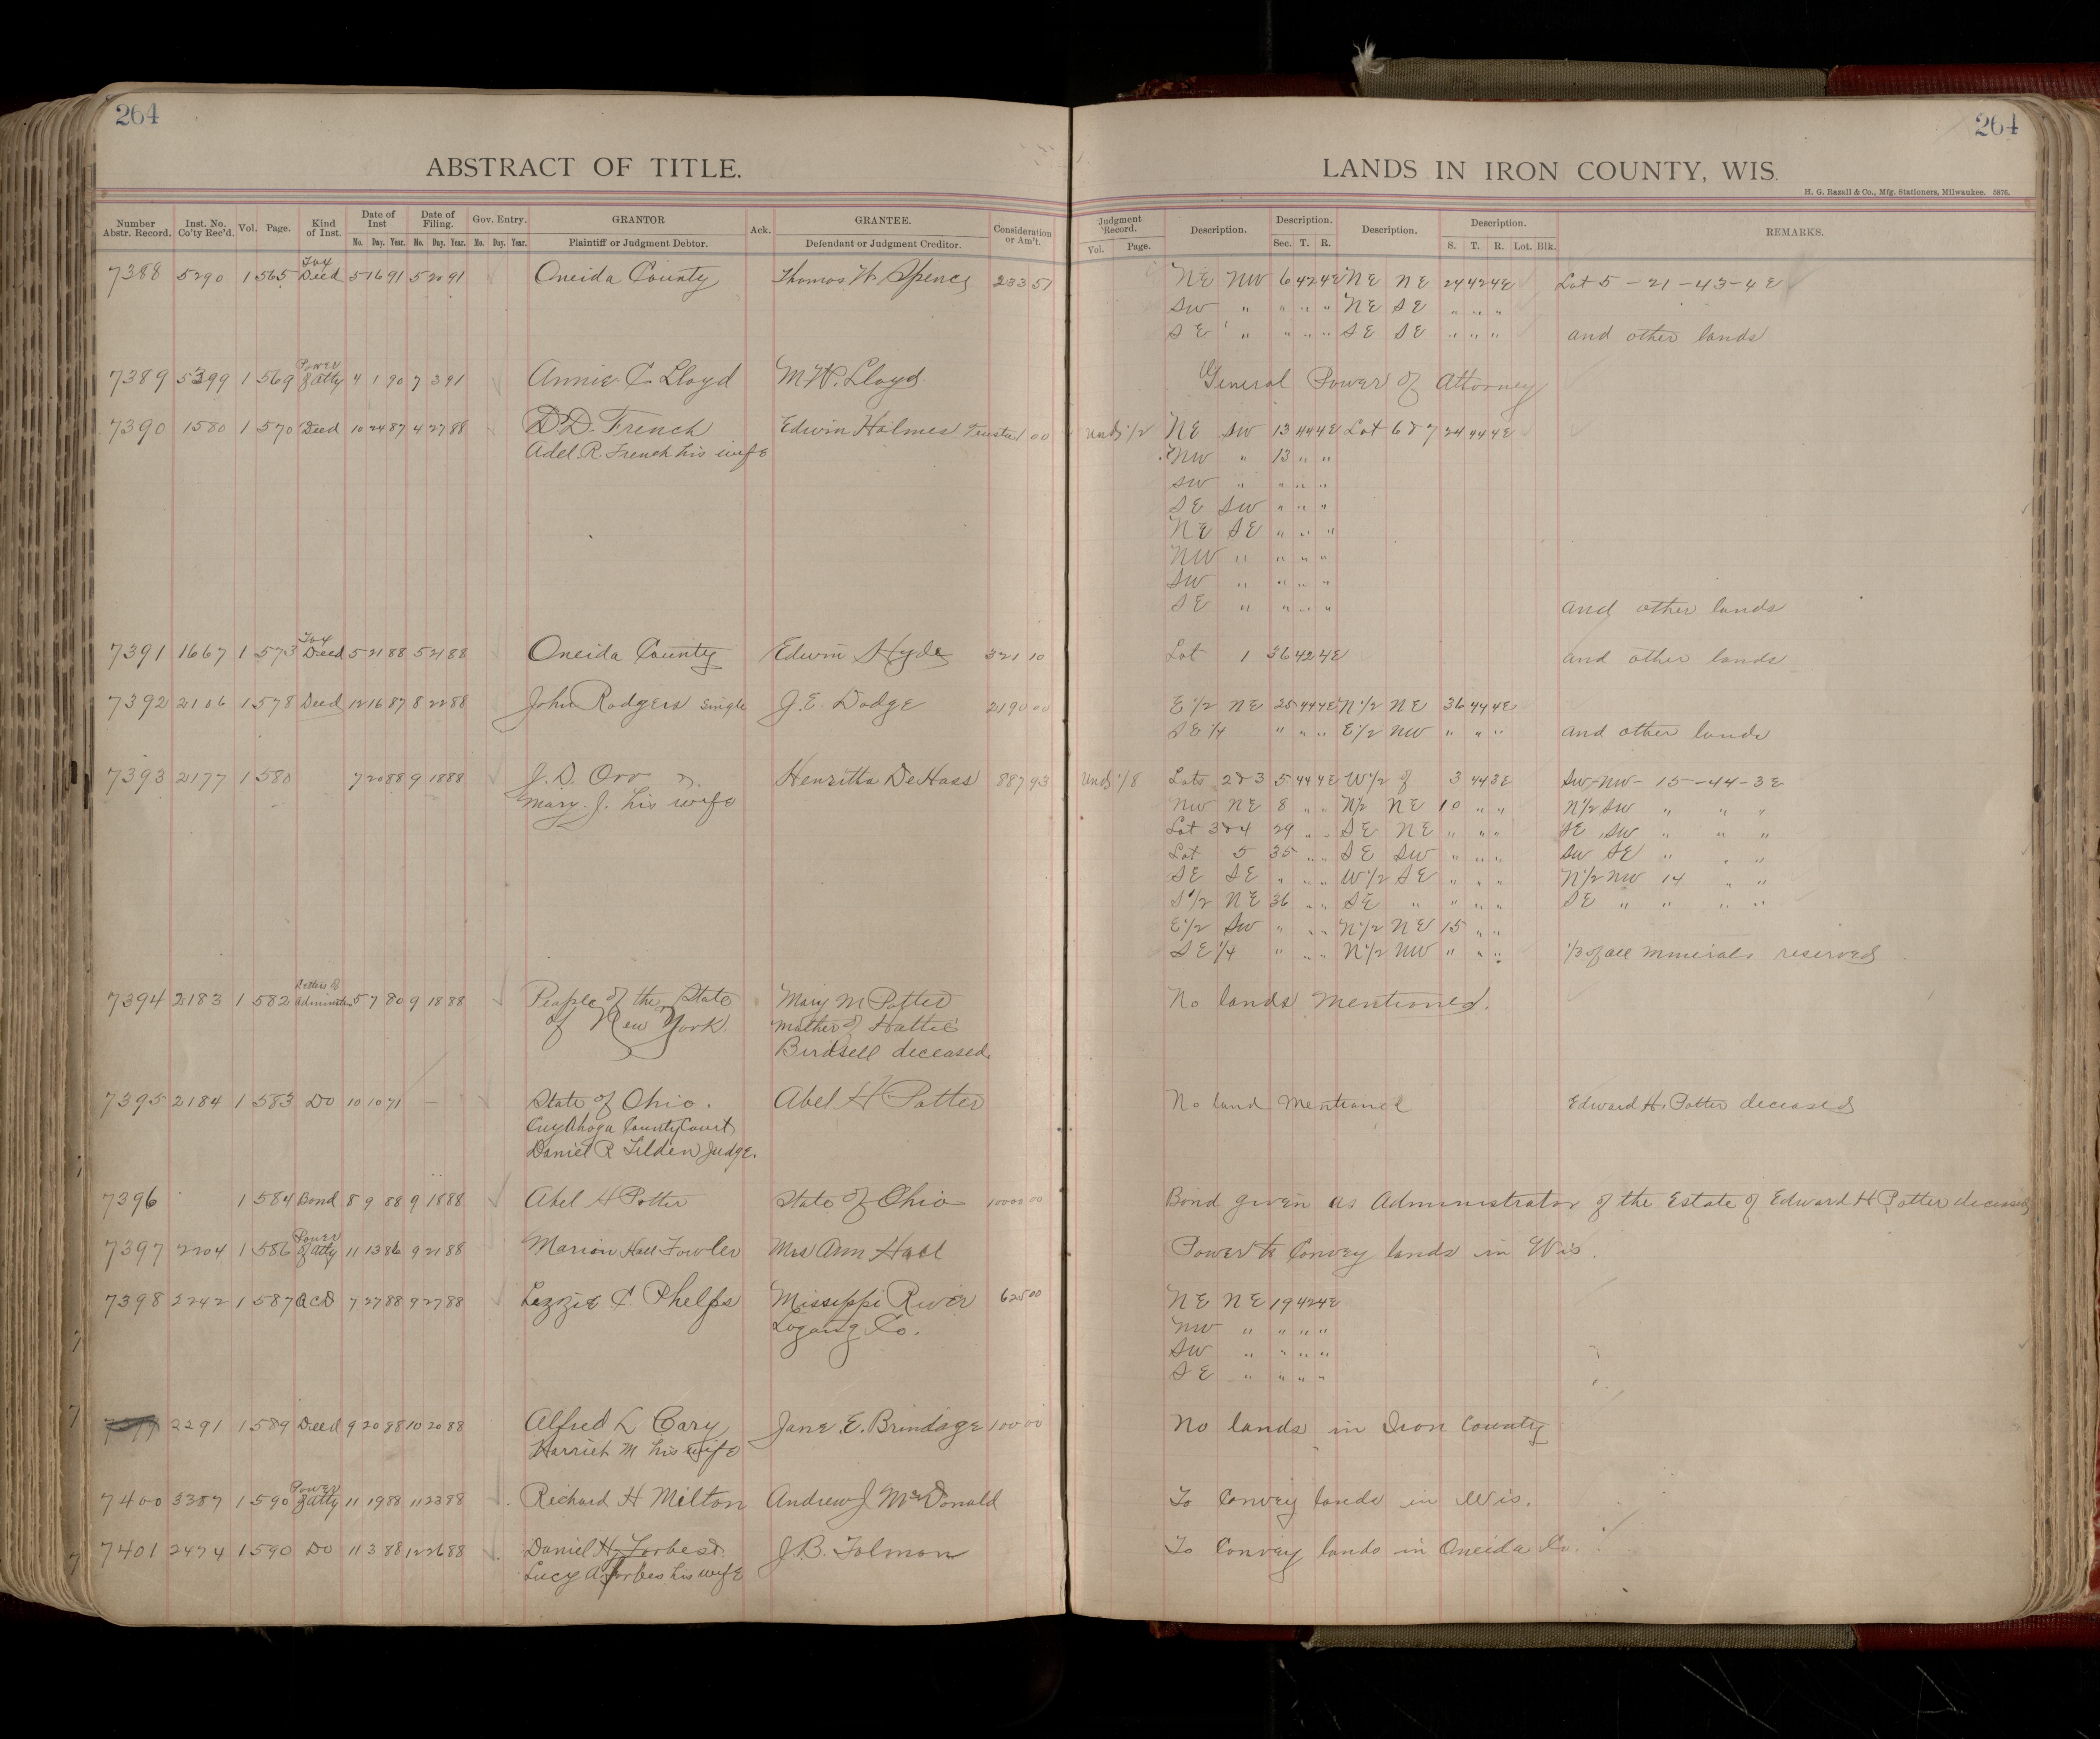 264
264
ABSTRACT OF TITLE.
LANDS IN IRON COUNTY, WIS.
H. G. Razall & Co., Mfg. Stationers, Milwaukee. 5876.
Number Abstr. Record. Inst. No. Co'ty Rec'd. Vol. Page. Kind of Inst. Date of Inst Mo. Day. Year. Date of Filing. Mo. Day. Year. Gov. Entry. Mo. Day. Year. GRANTOR Plaintiff or Judgment Debtor. Ack. GRANTEE. Defendant or Judgment Creditor. Consideration or Am't. Judgment Record. Vol. Page. Description. Description. Sec. T. R. Description. Description. S. T. R. Lot. Blk. REMARKS.
7388 5290 1 565 Tax Deed 5 16 91 5 20 91 Oneida County Thomas W. Spence 233 51 NE NW 6 42 4E NE NE 24 42 4E Lot 5 - 21 - 43 - 4 E
SW " " " " NE SE " " "
SE " " " " SE SE " " " and other lands
7389 5399 1 569 Power of Atty 4 1 90 7 3 91 Annie C. Lloyd M.W. Lloyd General Power of Attorney
7390 1580 1 570 Deed 10 24 87 4 27 88 D.D. French Edwin Holmes Trustee 1 00 Und 1/2 NE SW 13 44 4E Lot 6 & 7 24 44 4E
Adel. R. French his wife NW " 13 " "
SW " " " "
SE SW " " "
NE SE " " "
NW " " " "
SW " " " "
SE " " " " and other lands
7391 1667 1 573 Tax Deed 5 21 88 5 21 88 Oneida County Edwin Hyde 321 10 Lot 1 36 42 4E and other lands
7392 2106 1 578 Deed 12 16 87 8 22 88 John Rodgers single J.E. Dodge 2190 00 E 1/2 NE 25 44 4E N 1/2 NE 36 44 4E
SE 1/4 " " " E 1/2 NW " " " and other lands
7393 2177 1 580 7 20 88 9 18 88 J. D. Orr & Henritta DeHass 887 93 Und 1/8 Lots 2 & 3 5 44 4E W 1/2 of 3 44 3E SW-NW- 15 - 44 - 3 E
Mary. J. his wife NW NE 8 " " N 1/2 NE 10 " " N 1/2 SW " " "
Lot 3 & 4 29 " " SE NE " " " SE SW " " "
Lot 5 35 " " SE SW " " " SW SE " " "
SE SE " " " W 1/2 SE " " " N 1/2 NW 14 " "
S 1/2 NE 36 " " SE " " " " SE " " " "
E 1/2 SW " " " N 1/2 NE 15 " "
SE 1/4 " " " N 1/2 NW " " " 1/3 of all minerals reserved
7394 2183 1 582 Letters of 5 7 80 9 18 88 People of the State Mary M Potter No lands mentioned.
of New York. mother of Hattie
Birdsell deceased.
7395 2184 1 583 Do 10 10 71 — State of Ohio. Abel H Potter No land mentioned Edward H. Potter deceased
Cuyahoga County Court
Daniel R Tilden Judge.
7396 1 584 Bond 8 9 88 9 18 88 Abel H Potter State of Ohio 10000 00 Bond given as Administrator of the Estate of Edward H Potter deceased
7397 2204 1 586 Power of Atty 11 13 86 9 21 88 Marion Hall Fowler Mrs Ann Hall Power to Convey lands in Wis.
7398 2242 1 587 QCD 7 27 88 9 27 88 Lizzie C. Phelps Missippi River 625 00 NE NE 19 42 4E
Logang Co. NW " " " "
SW " " " "
SE " " " "
2291 1 589 Deed 9 20 88 10 20 88 Alfred L Cary Jane E. Brindage 100 00 No lands in Iron County
Harriet M his wife
7400 3387 1 590 Power of Atty 11 19 88 11 23 88 Richard H Milton Andrew J McDonald To Convey lands in Wis.
7401 2474 1 590 Do 11 3 88 12 26 88 Daniel H, Forbes & J.B. Tolman To Convey lands in Oneida Co.
Lucy A. Forbes his wife